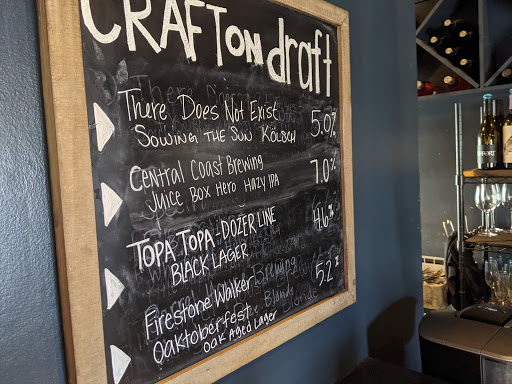 CRAFT ON draft
There Does Not Exist 5.0%
SOWING THE SUN KÖLSCH
Central Coast Brewing 7.0%
Juice Box Hero Hazy IPA
TOPA TOPA - DOZER LINE 4.6%
BLACK LAGER
Firestone Walker 5.2%
Oaktoberfest
Oak Aged Lager